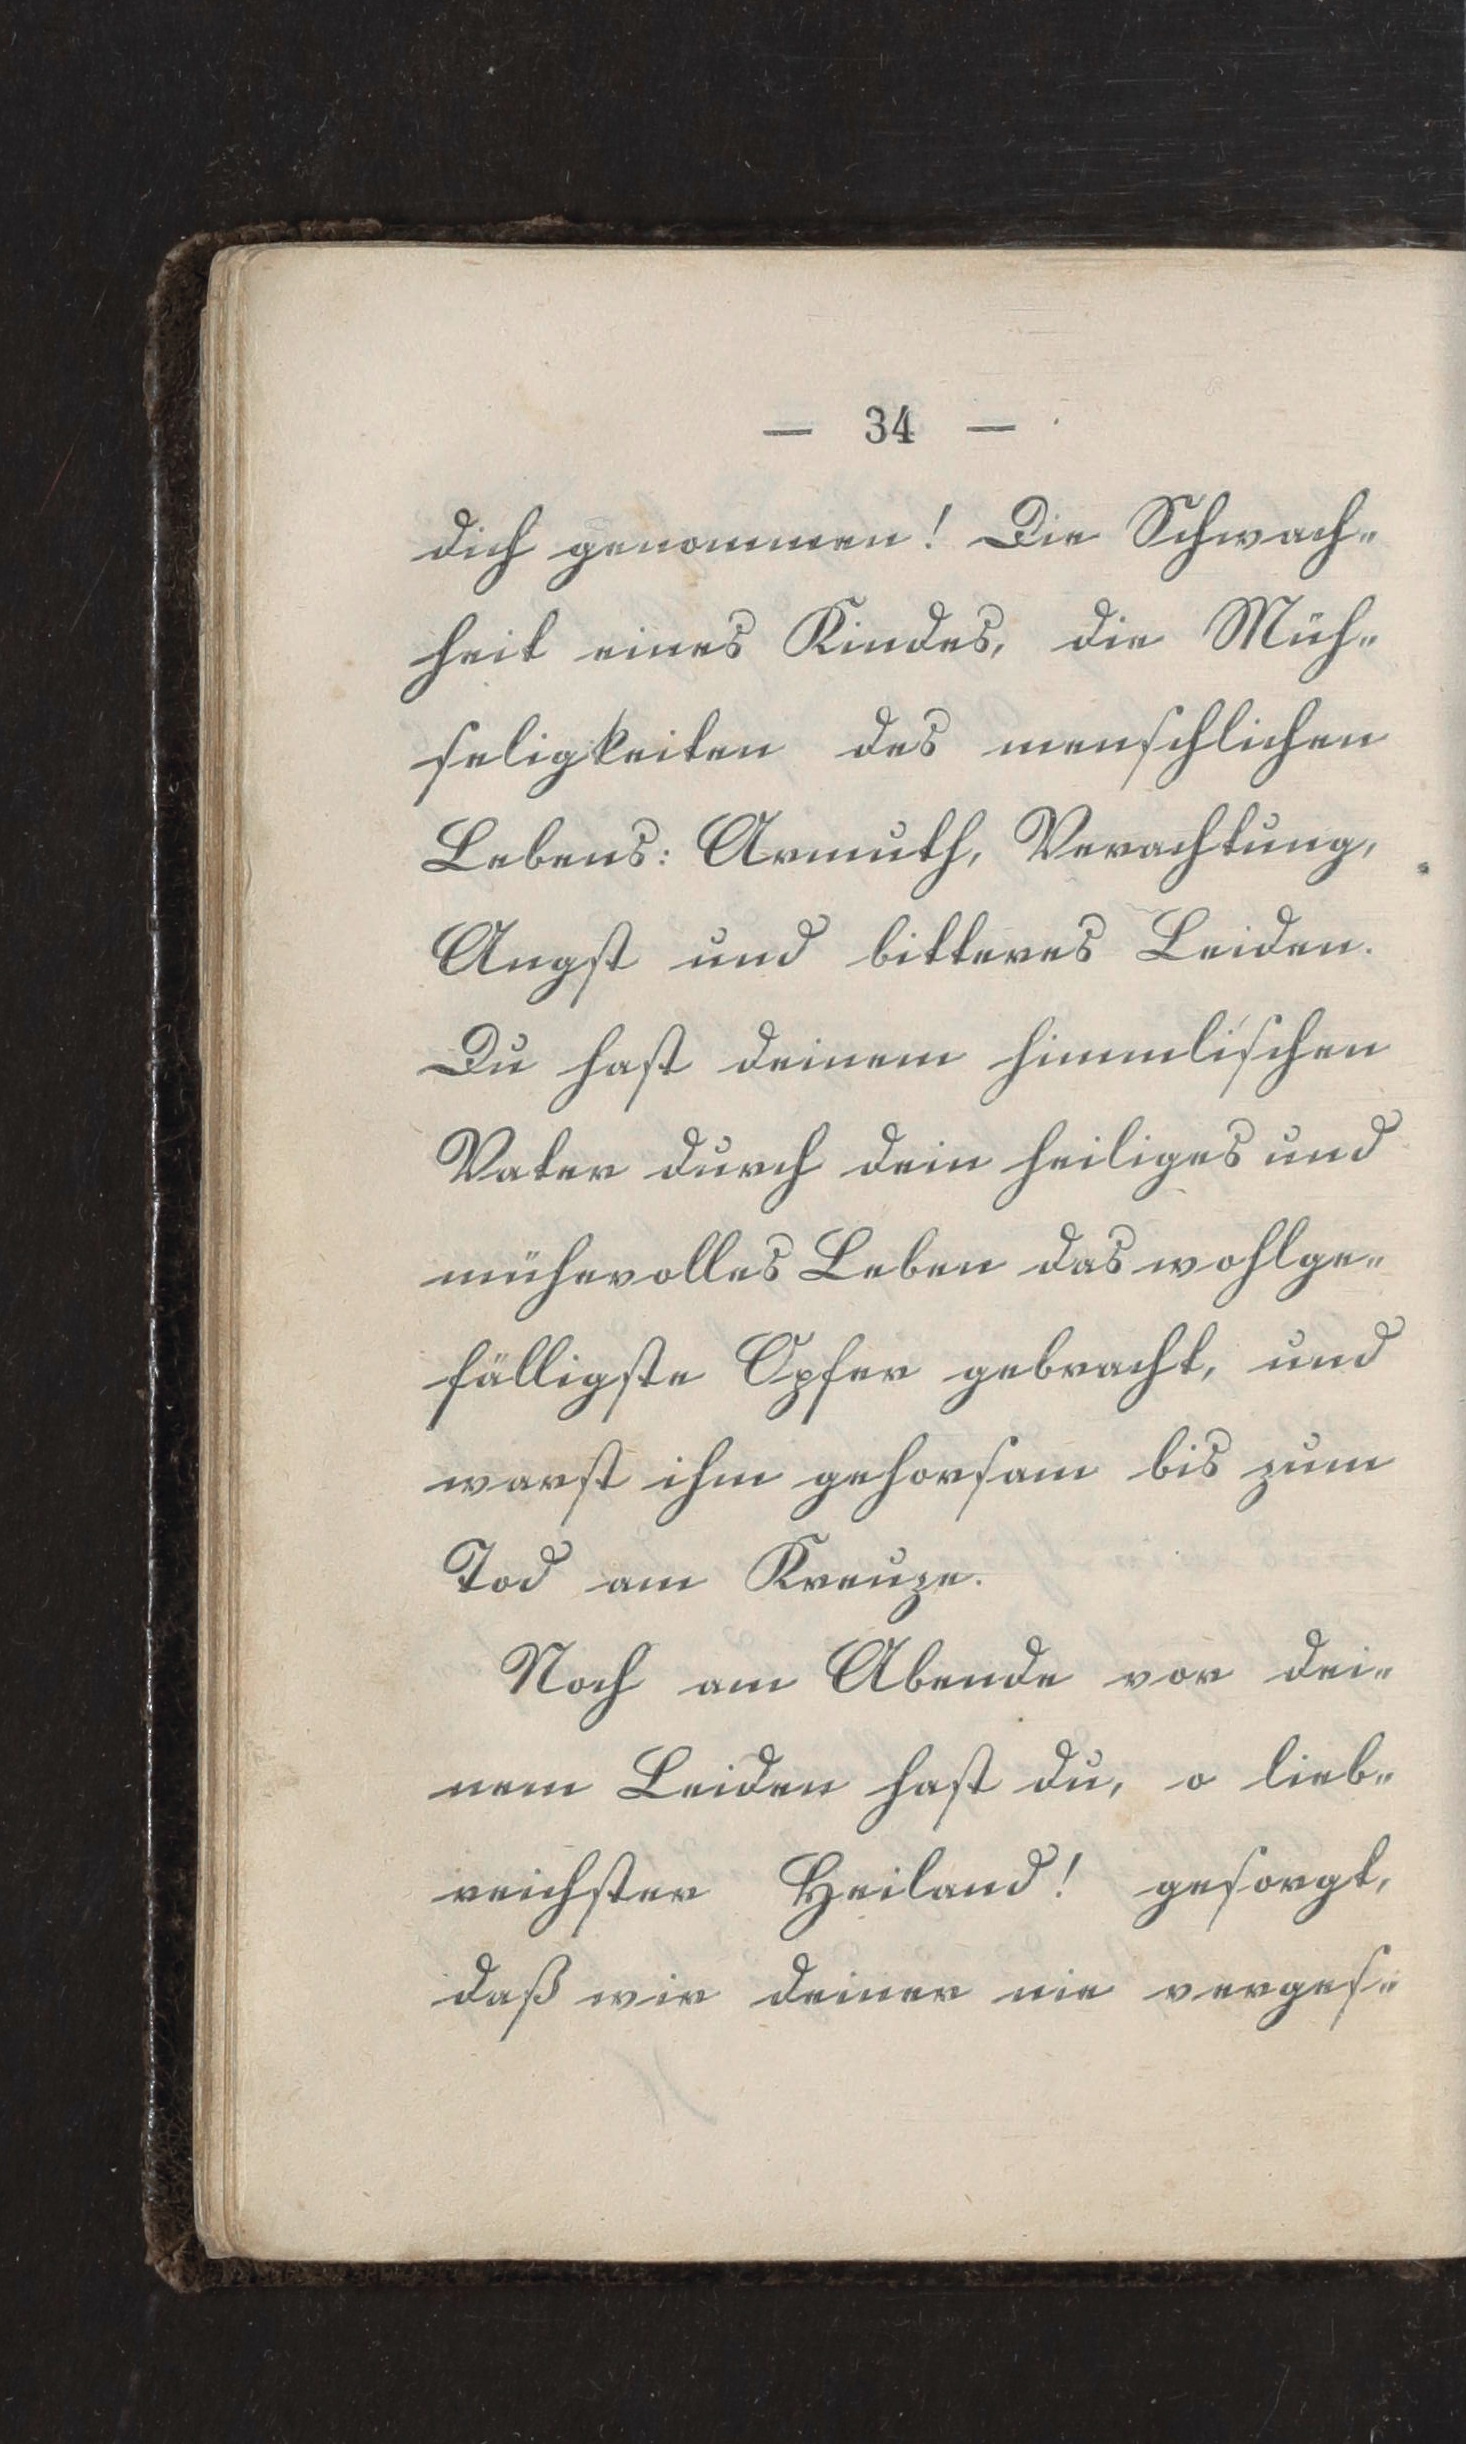 — 34 —
dich genommen! Die Schwach-
heit eines Kindes, die Müh-
seligkeiten des menschlichen
Lebens: Armuth, Verachtung,
Angst und bitteres Leiden.
Du hast deinem himmlischen
Vater durch dein heiliges und
mühevolles Leben das wohlge-
fälligste Opfer gebracht, und
warst ihm gehorsam bis zum
Tod am Kreuze.
Noch am Abende vor dei-
nem Leiden hast du, o lieb-
reichster Heiland! gesorgt,
daß wir deiner nie verges-